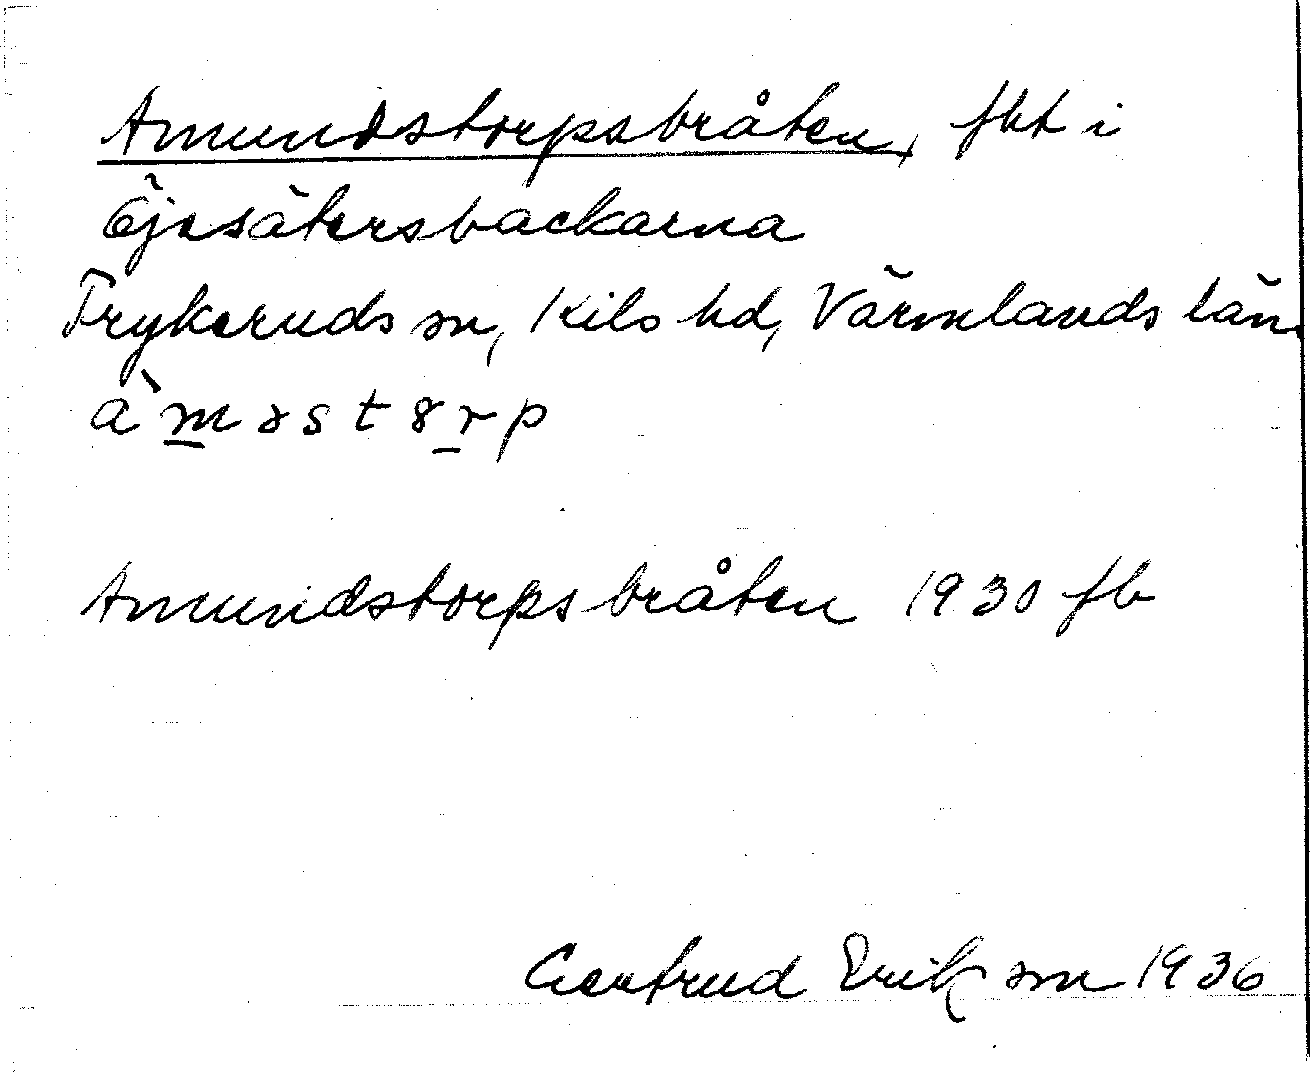 Amundstorpsbråten, fht i
Öjesätersbackarna
Frykeruds sn, Kils hd, Värmlands län.
àmǝstɤrp
Amundstorpsbråten 1930 fb
Gertrud Erikson 1936